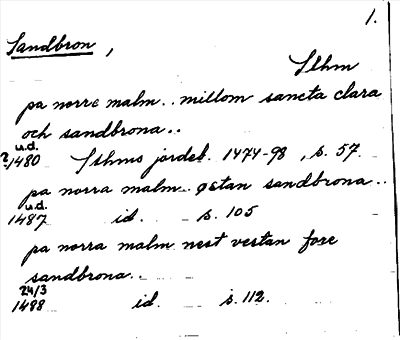 1.
Sandbron,
Sthm
pa norre malm.. millom sancta clara
och sandbrona..
u.d.
?/1480 Sthms jordeb. 1474-98, s. 57.
pa norra malm.. østan sandbrona..
u.d.
1487 id. s. 105
pa norra malm nest vestan fore
sandbrona..
24/3
1488 id. s. 112.